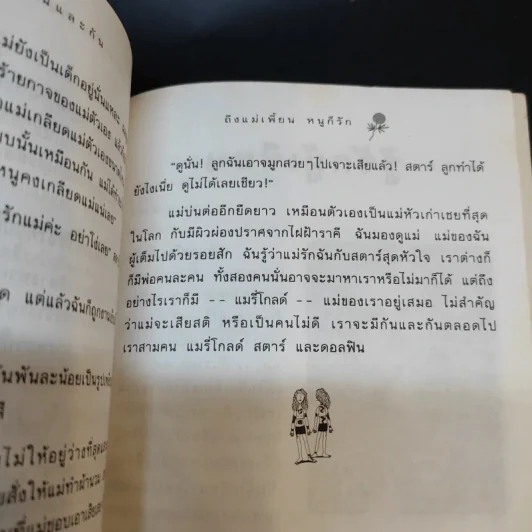 นและกัน
แม่ยังเป็นเด็กอยู่นั่นแหละ
ร้ายกาจของแม่ตัวเอง แล้ว
แม่เกลียดแม่ตัวเอง
บบนั้นเหมือนกัน แม่ได้
หนูคงเกลียดแม่แม่เลย"
รักแม่ค่ะ อย่าโง่เลย"
ด แต่แล้วฉันก็ถูก
นพันละน้อยเป็นรูป
ไม่ให้อยู่ว่างที่สุด
ยสั่งให้แม่ทำผ้านวม
ที่แม่ชอบเอาเสีย
ถึงแม่เพี้ยน หนูก็รัก
"ดูนั่น! ลูกฉันเอาจมูกสวยๆไปเจาะเสียแล้ว! สตาร์ ลูกทำได้
ยังไงเนี่ย ดูไม่ได้เลยเชียว!"
แม่บ่นต่ออีกยืดยาว เหมือนตัวเองเป็นแม่หัวเก่าเชยที่สุด
ในโลก กับมีผิวผ่องปราศจากไฝฝ้าราคี ฉันมองดูแม่ แม่ของฉัน
ผู้เต็มไปด้วยรอยสัก ฉันรู้ว่าแม่รักฉันกับสตาร์สุดหัวใจ เราต่างก็
ก็มีพ่อคนละคน ทั้งสองคนนั่นอาจจะมาหาเราหรือไม่มาก็ได้ แต่ถึง
อย่างไรเราก็มี -- แมรี่โกลด์ -- แม่ของเราอยู่เสมอ ไม่สำคัญ
ว่าแม่จะเสียสติ หรือเป็นคนไม่ดี เราจะมีกันและกันตลอดไป
เราสามคน แมรี่โกลด์ สตาร์ และดอลฟิน